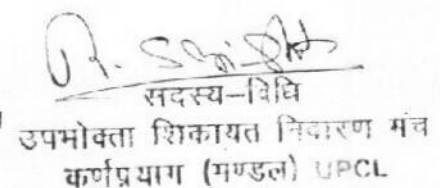 सदस्य–विधि
उपभोक्ता शिकायत निवारण मंच
कर्णप्रयाग (मण्डल) UPCL